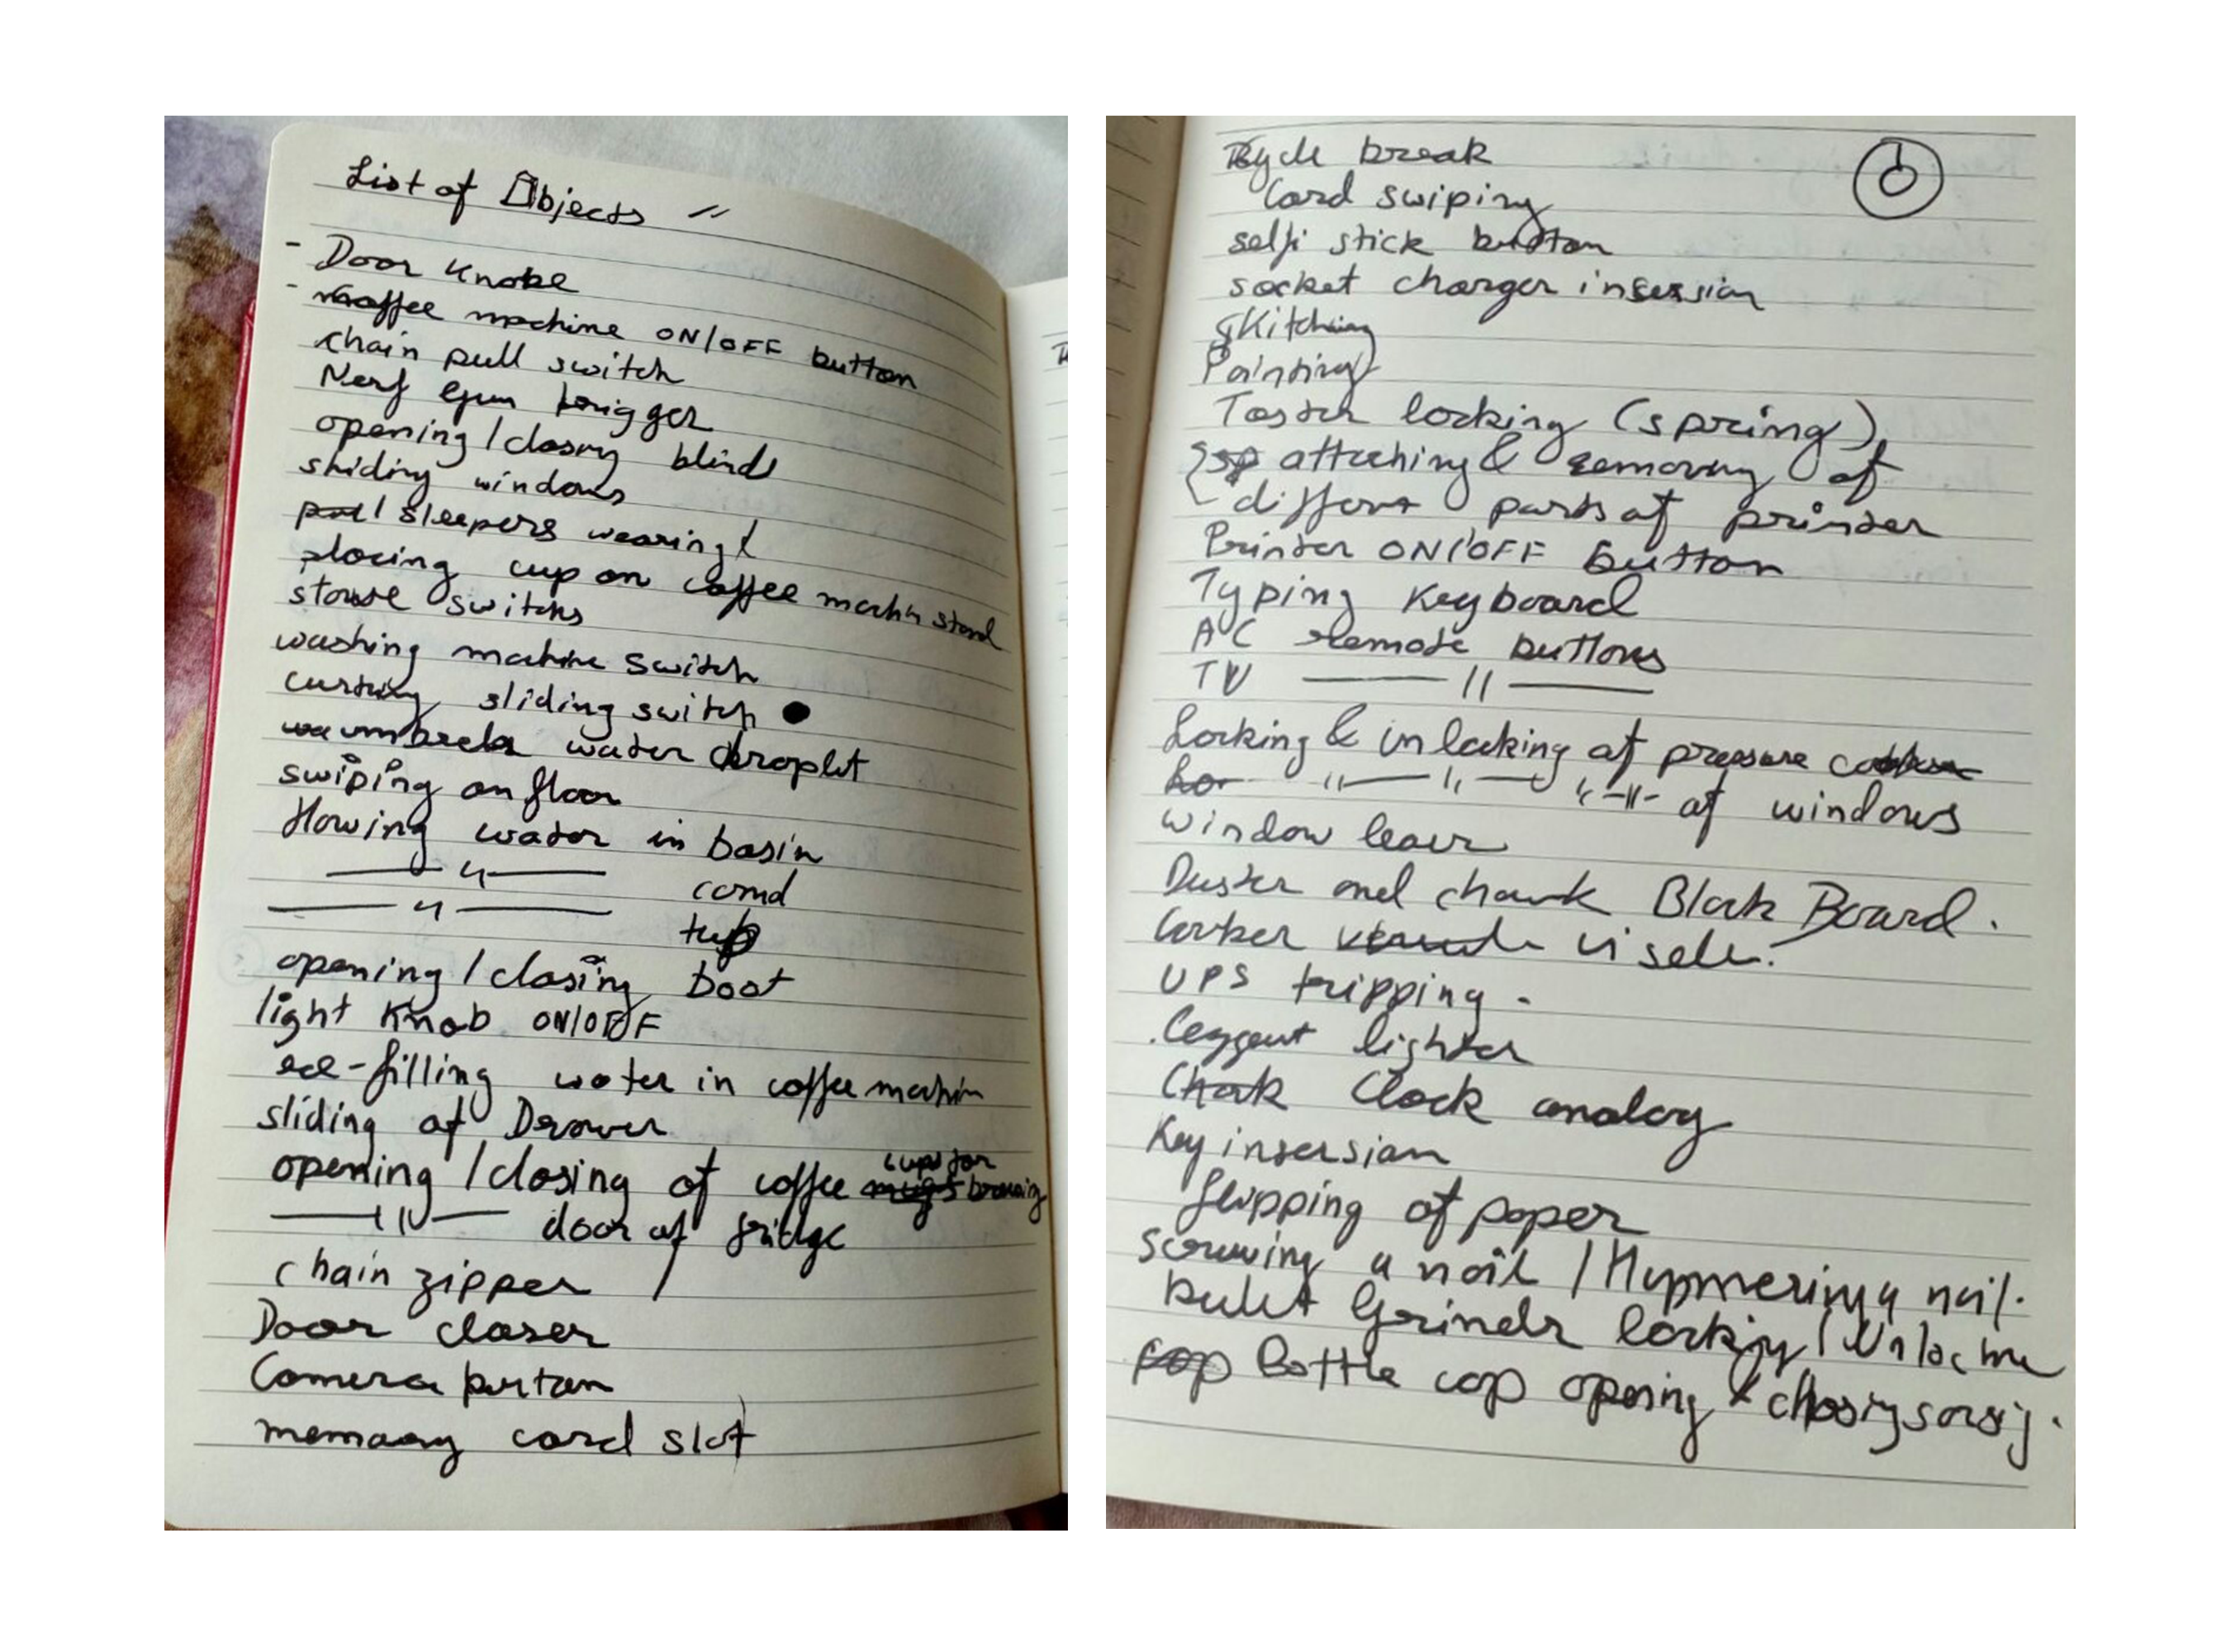 List of Objects //
- Door Knobe
- coffee machine ON/OFF button
chain pull switch
Nerf Gun trigger
opening / closing blinds
sliding windows
sleepers wearing
placing cup on coffee machin stand
switchs
washing machine switch
sliding switch
umbrela water droplet
swiping on floor
flowing water in basin
—— " —— comd
—— " —— tub
opening / closing boot
light Knob ON/OFF
re-filling water in coffee machin
sliding of Drower
cups for
opening / closing of coffee
—— " —— door of fridge
chain zipper /
Door closer
Camera button
memaory card slot
Bycle break
Card swiping
selfi stick button
socket charger insersion
skitching
Painting
Toster locking (spring)
attaching & removing of
differnt parts of printer
Printer ON/OFF button
Typing Keyboard
AC remote buttons
TV —— " ——
Locking & unlocking of pressure
" —— " —— " —"— of windows
window lever
Duster and chawk Black Board.
UPS tripping.
lighter
Clock analog
Key insersian
flipping of paper
screwing a nail / Hammering a nail.
Grinder locking /
Bottle cap opening &